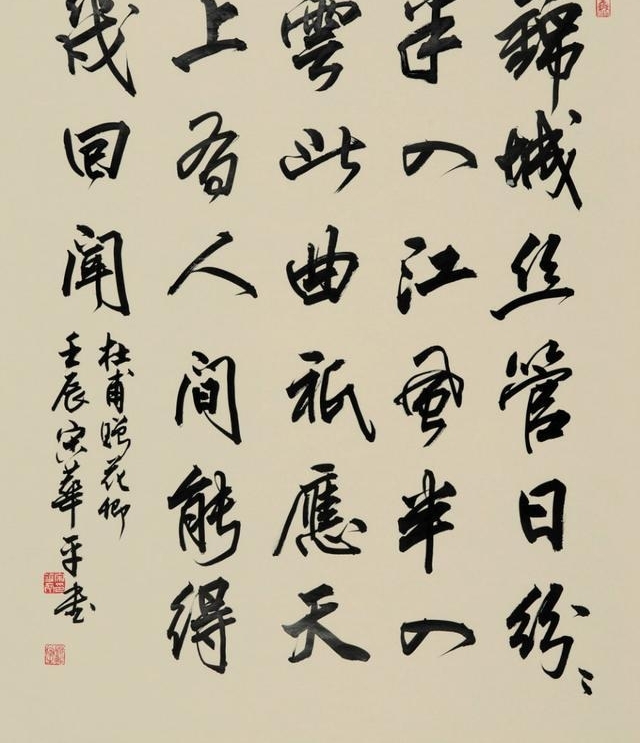 錦城丝管日紛〻
半入江風半入
雲此曲祇應天
上有人間能得
幾回聞
杜甫贈花卿
壬辰宋華平书